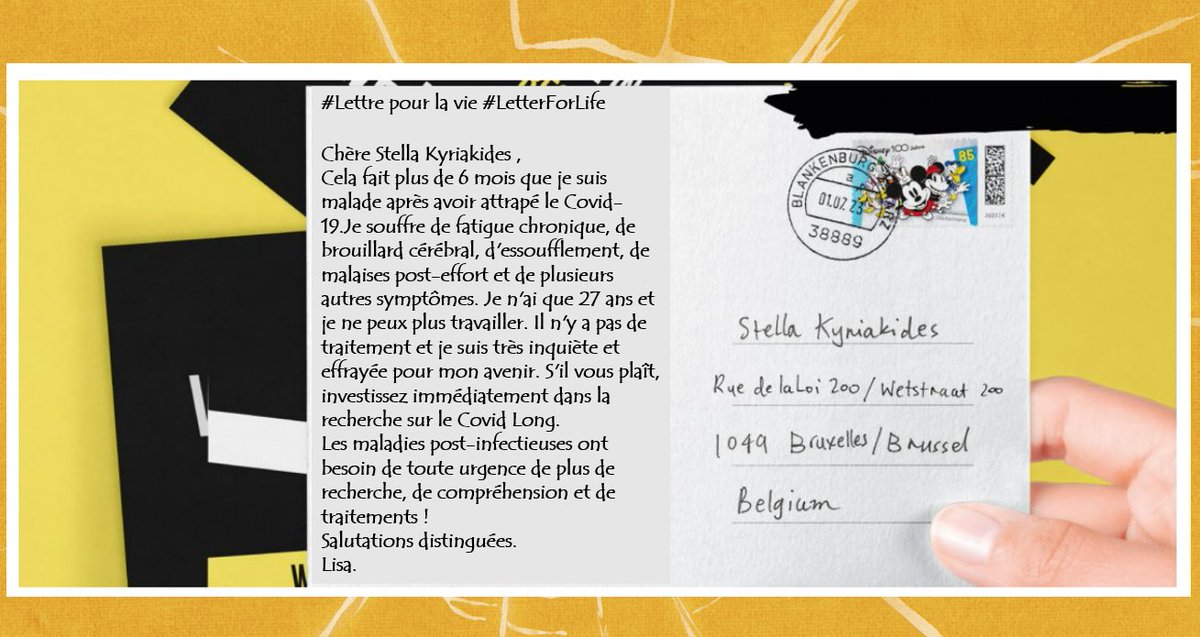 #Lettre pour la vie #LetterForLife
Chère Stella Kyriakides ,
Cela fait plus de 6 mois que je suis
malade après avoir attrapé le Covid-
19.Je souffre de fatigue chronique, de
brouillard cérébral, d'essoufflement, de
malaises post-effort et de plusieurs
autres symptômes. Je n'ai que 27 ans et
je ne peux plus travailler. Il n'y a pas de
traitement et je suis très inquiète et
effrayée pour mon avenir. S'il vous plaît,
investissez immédiatement dans la
recherche sur le Covid Long.
Les maladies post-infectieuses ont
besoin de toute urgence de plus de
recherche, de compréhension et de
traitements !
Salutations distinguées.
Lisa.
Disney 100 Jahre
85
Deutschland
BLANKENBURG HARZ
01.07.23
38889
Stella Kyriakides
Rue de la Loi 200 / Wetstraat 200
1049 Bruxelles / Brussel
Belgium